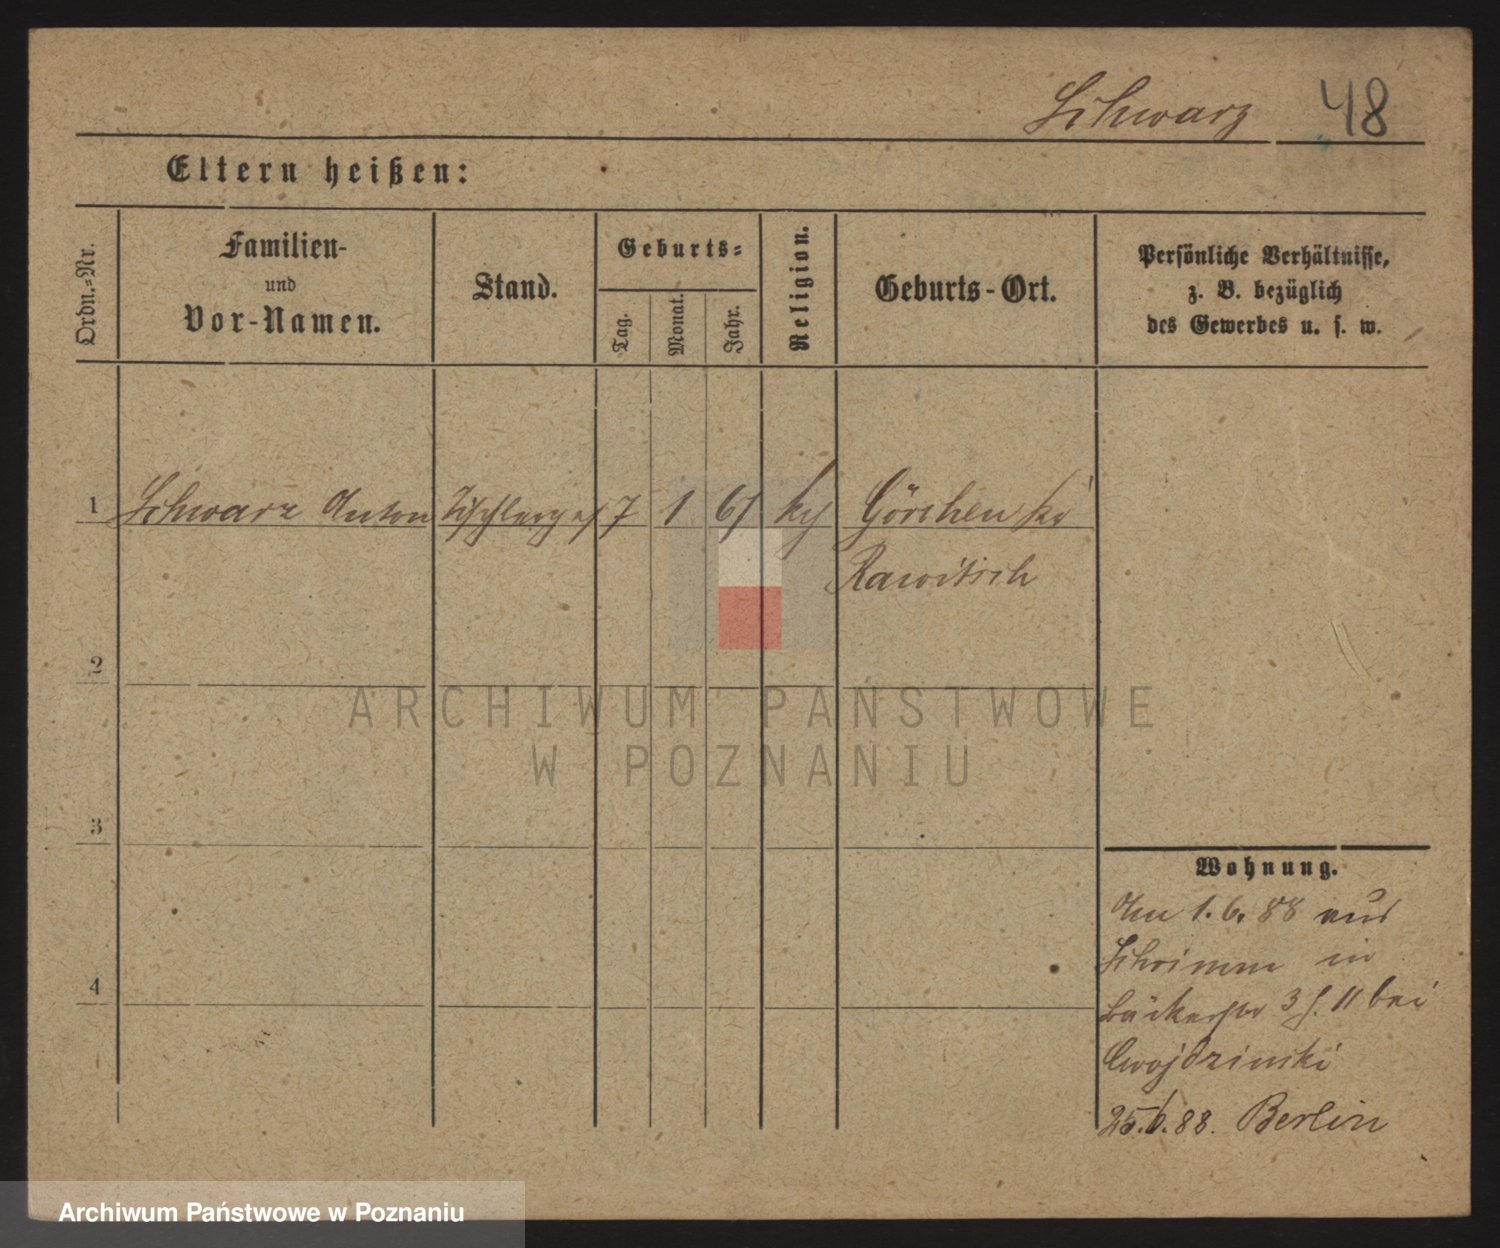 Schwarz 48
Eltern heißen:
Ordn.-Nr.
Familien-
und
Vor-Namen.
Stand.
Geburts-
Tag.
Monat.
Jahr.
Religion.
Geburts-Ort.
Persönliche Verhältnisse,
z. B. bezüglich
des Gewerbes u. s. w.
1 Schwarz Anton Tischlerges 7 1 61 Görchen Kr
Rawitsch
2
3
4
Wohnung.
Am 1.6.88 aus
Schrimm in
Bäckerstr 3 11 bei
Cwojdzinski
25.6.88. Berlin
ARCHIWUM PAŃSTWOWE
W POZNANIU
Archiwum Państwowe w Poznaniu